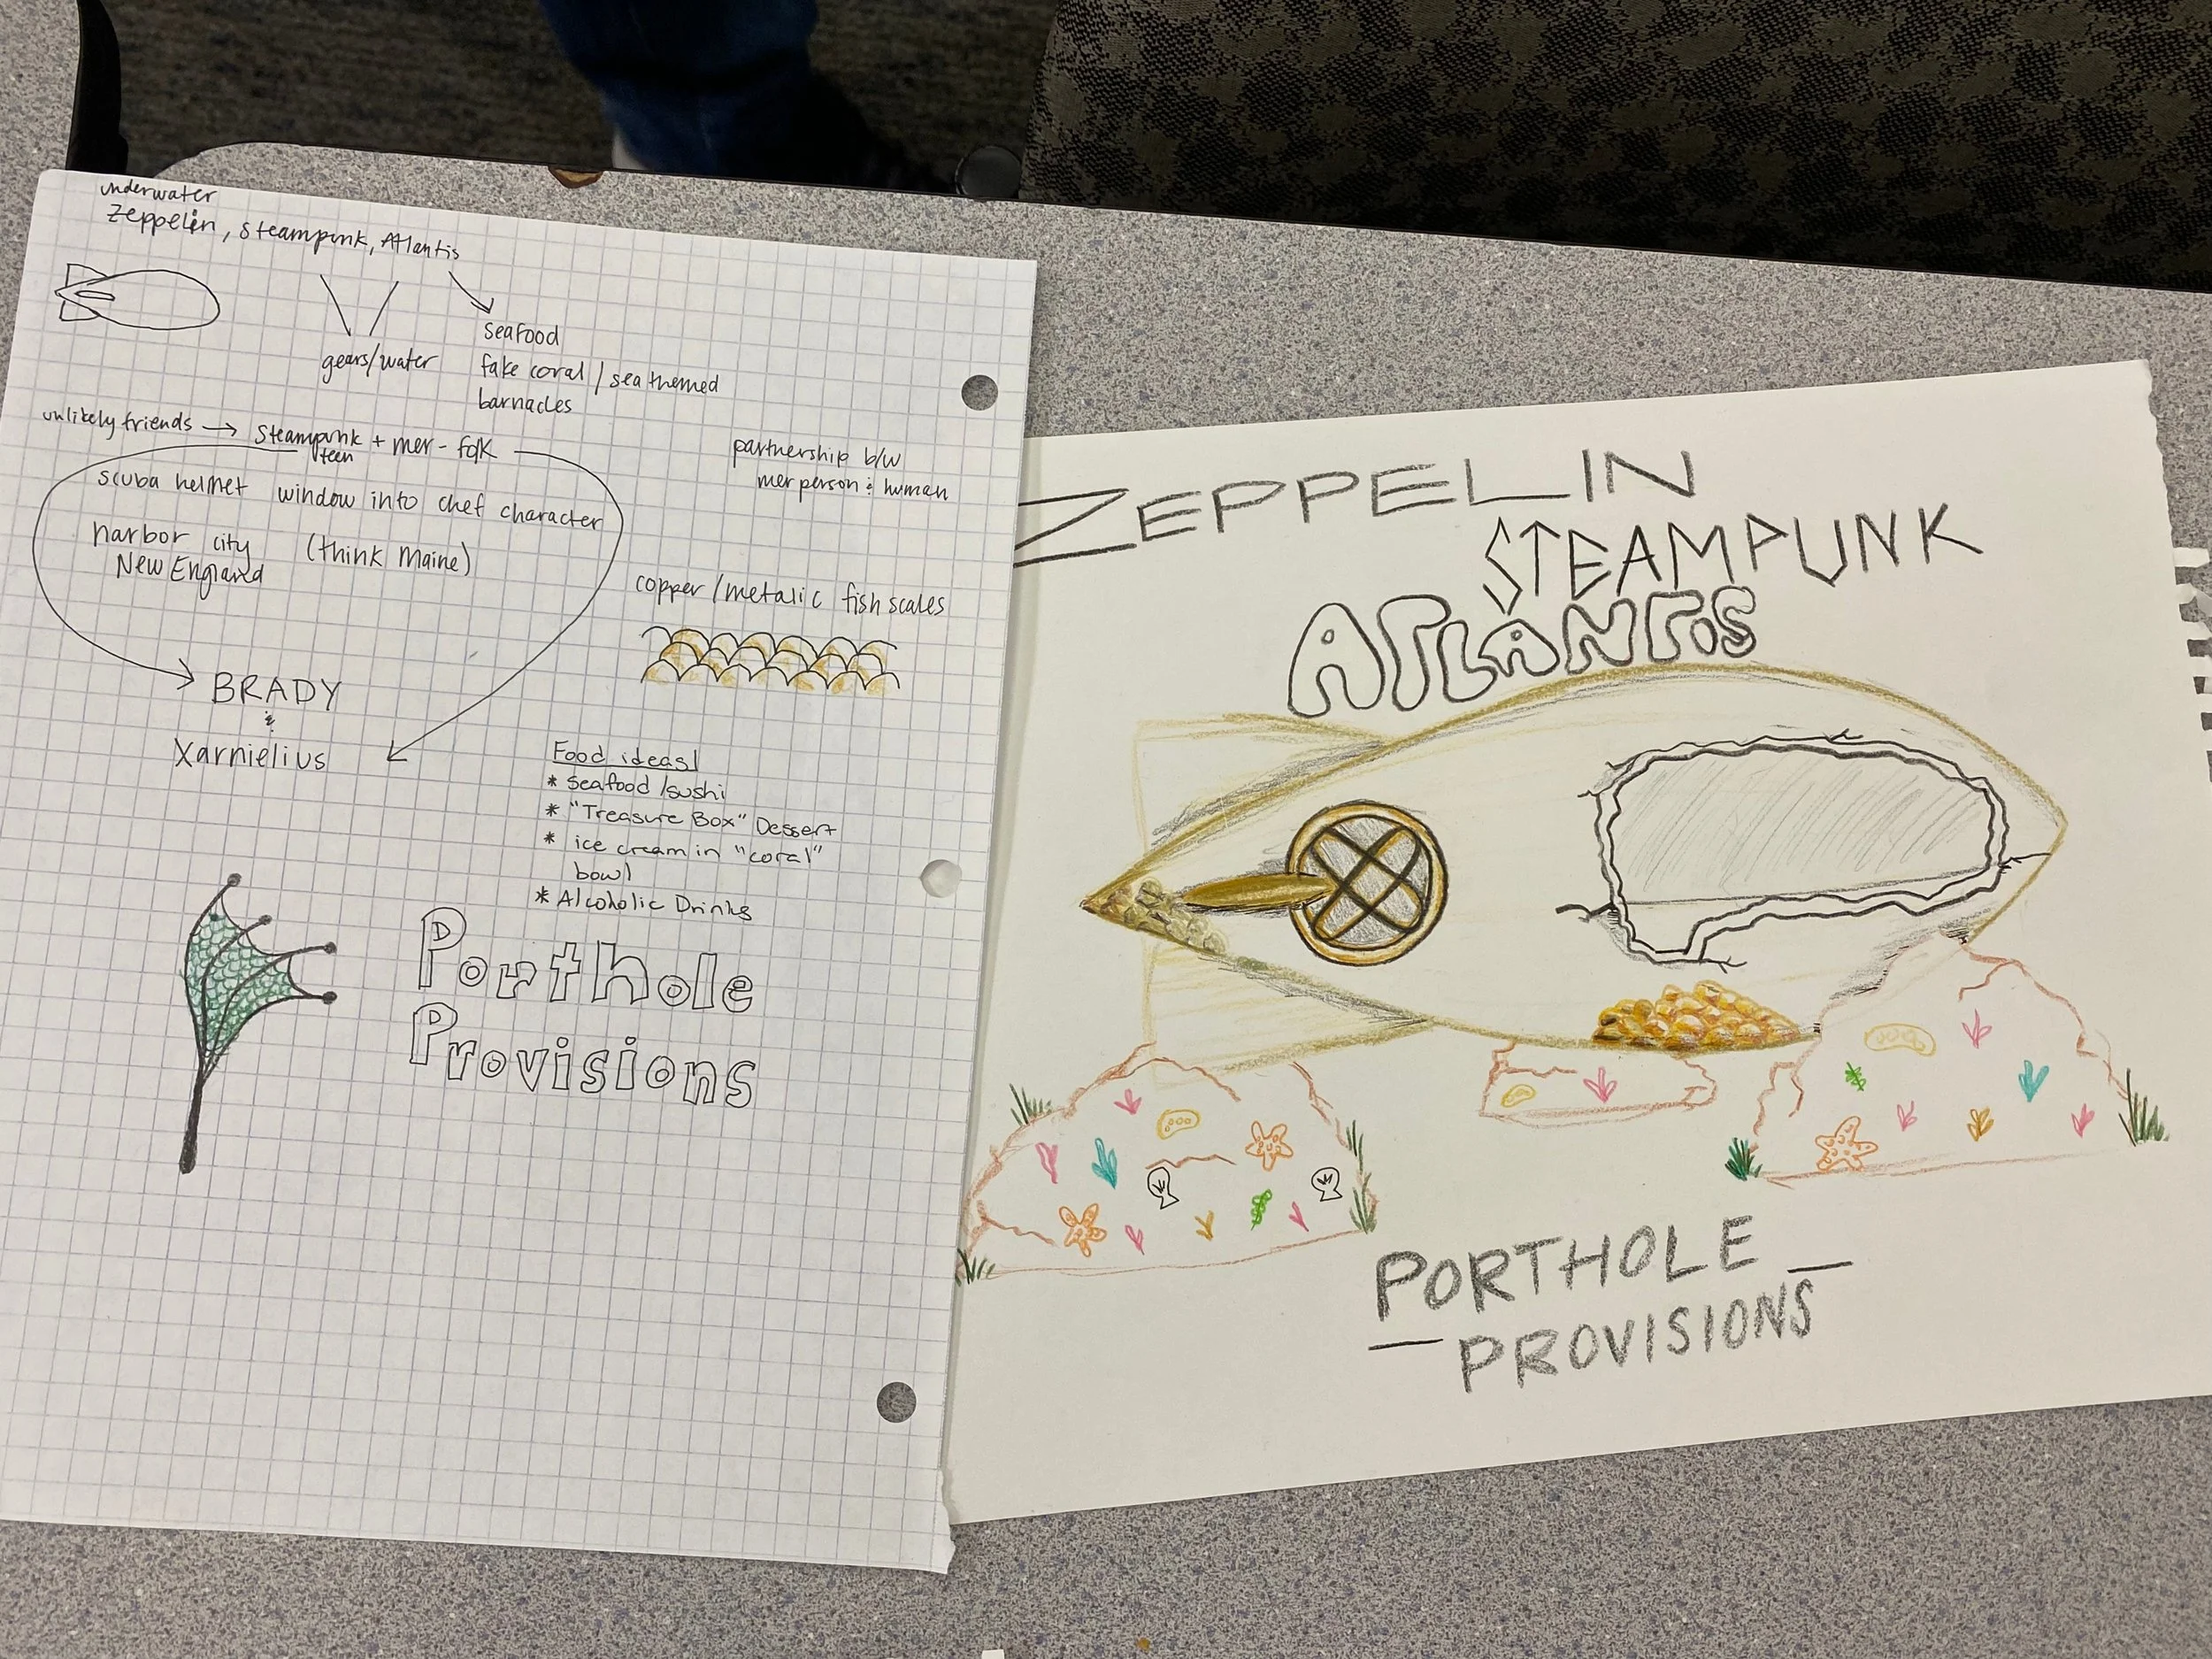 underwater
Zeppelin, Steampunk, Atlantis
gears/water
seafood
fake coral / sea themed
barnacles
unlikely friends → Steampunk + mer-folk
teen
partnership b/w
merperson & human
scuba helmet window into chef character
harbor city (think Maine)
New England
copper/metalic fish scales
BRADY
&
Xarnielius
Food ideas!
* Seafood/sushi
* "Treasure Box" Dessert
* ice cream in "coral"
bowl
* Alcoholic Drinks
Porthole
Provisions
ZEPPELIN
STEAMPUNK
ATLANTIS
PORTHOLE
PROVISIONS